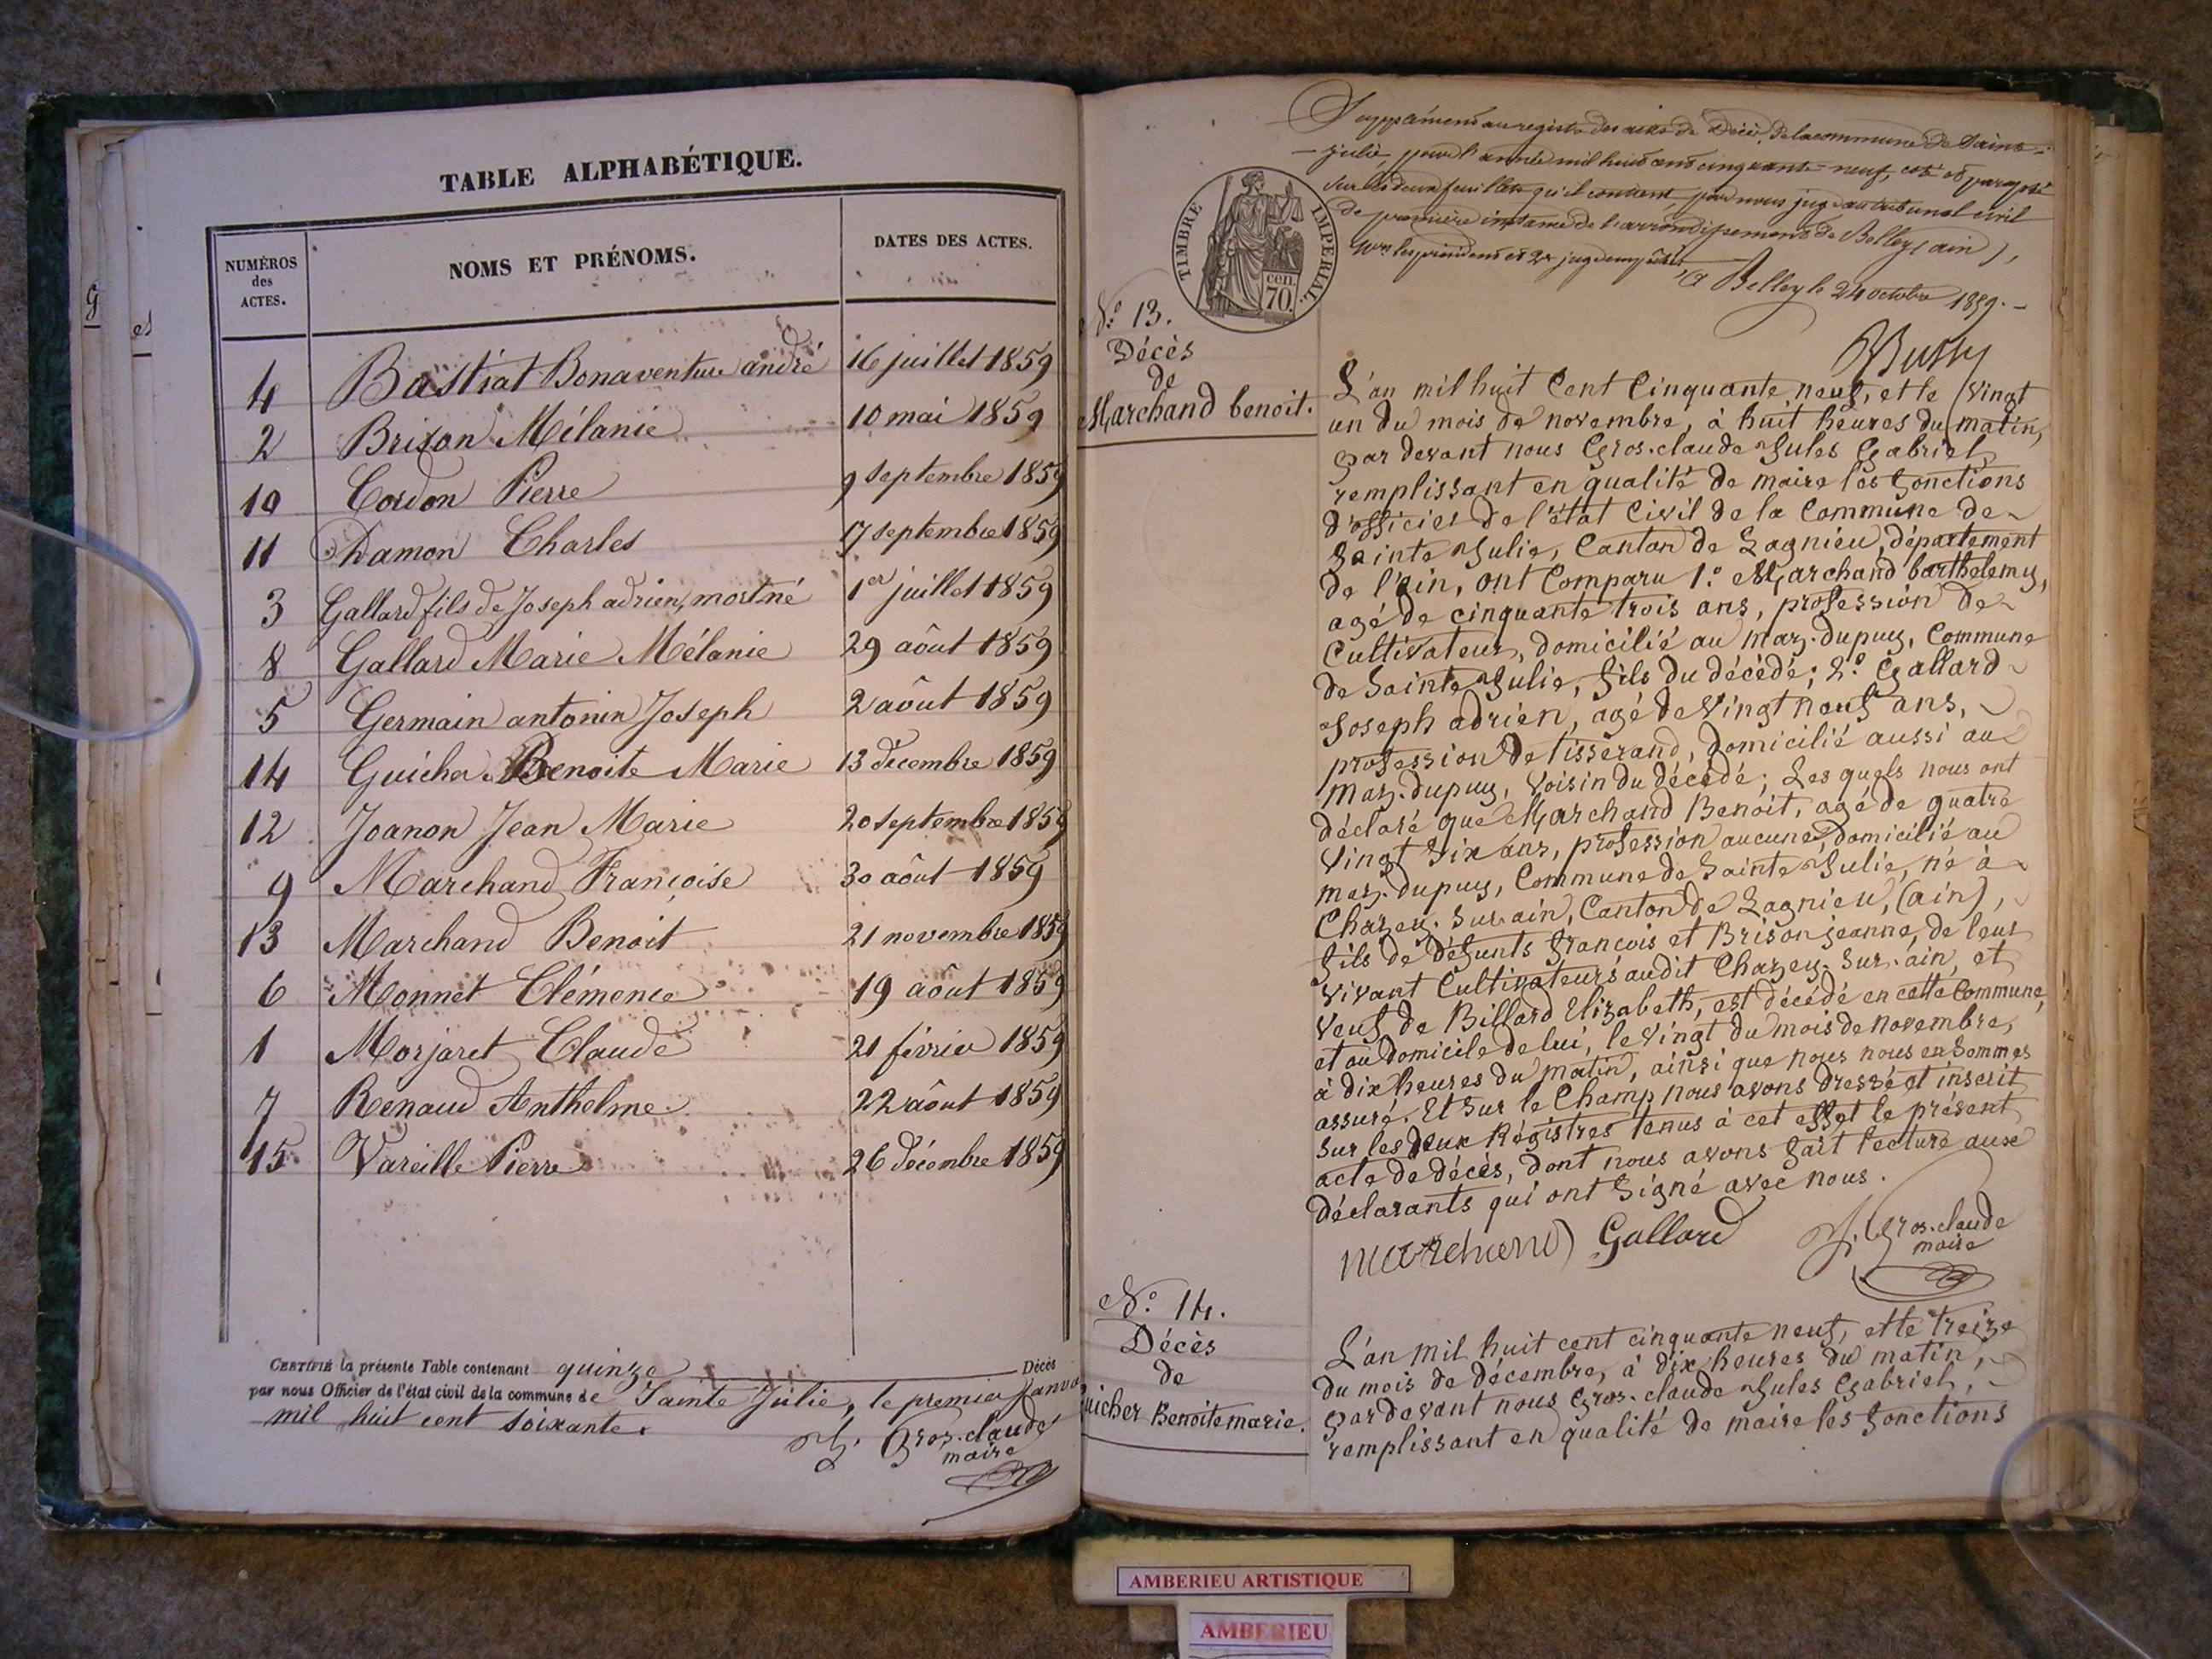 TABLE ALPHABÉTIQUE.
NUMÉROS
des
ACTES.
NOMS ET PRÉNOMS.
DATES DES ACTES.
4 Bastiat Bonaventure andré 16 juillet 1859
2 Brison Mélanie 10 mai 1859
10 Cordon Pierre 9 septembre 1859
11 Damon Charles 17 septembre 1859
3 Gallard fils de Joseph adrien, mort né 1er juillet 1859
8 Gallard Marie Mélanie 29 août 1859
5 Germain antonin Joseph 2 août 1859
14 Guicher Benoite Marie 13 décembre 1859
12 Joanon Jean Marie 20 septembre 1859
9 Marchand Françoise 30 août 1859
13 Marchand Benoit 21 novembre 1859
6 Monnet Clémence 19 août 1859
1 Morjaret Claude 21 février 1859
7 Renaud Anthelme 22 août 1859
15 Vareille Pierre 26 décembre 1859
CERTIFIÉ la présente Table contenant quinze Décès
par nous Officier de l'état civil de la commune de Sainte Julie, le premier janvi
mil huit cent soixante.
J. Gros-claude
maire
Supplément au registre des actes de Décès, de la commune de Sainte-
julie, pour l'année mil huit cent cinquante-neuf, coté et paraphé
sur les deux feuillets qu'il contient, par nous juge au tribunal civil
de première instance de l'arrondissement de Belley (ain),
Mrs les président et juge empêchés
A Belley le 24 octobre 1859.
TIMBRE IMPERIAL.
cen.
70.
N.° 13.
Décès
de
Marchand benoit.
L'an mil huit Cent Cinquante neuf, et le Vingt
un du mois de novembre, à huit heures du matin,
par devant nous Gros-claude Jules Gabriel,
remplissant en qualité de maire les fonctions
d'officier de l'état Civil de la Commune de
Sainte Julie, Canton de Lagnieu, département
de l'ain, ont Comparu 1.° Marchand barthelemy,
agé de cinquante trois ans, profession de
Cultivateur, domicilié au maz-dupuy, Commune
de Sainte Julie, fils du décédé; 2.° Gallard
Joseph adrien, agé de Vingt neuf ans,
profession de tisserand, domicilié aussi au
maz-dupuy, Voisin du décédé; Les quels nous ont
déclaré que Marchand Benoit, agé de quatre
Vingt Six ans, profession aucune, domicilié au
maz-dupuy, Commune de Sainte Julie, né à
Chazey-Sur-ain, Canton de Lagnieu, (ain),
fils de défunts françois et Brison jeanne, de leur
vivant Cultivateurs audit Chazey-Sur-ain, et
veuf de Billard Elizabeth, est décédé en cette Commune,
et au domicile de lui, le Vingt du mois de novembre,
à dix heures du matin, ainsi que nous nous en Sommes
assuré. Et Sur le Champ nous avons dressé et inscrit
Sur les deux Régistres tenus à cet effet le présent
acte de décès, dont nous avons fait lecture aux
déclarants qui ont Signé avec nous.
marchand Gallard J. Gros-claude
maire
N.° 14.
Décès
de
uicher Benoite marie.
L'an mil huit cent cinquante neuf, et le treize
du mois de décembre, à dix heures du matin,
par devant nous Gros-claude Jules Gabriel,
remplissant en qualité de maire les fonctions
AMBERIEU ARTISTIQUE
AMBERIEU